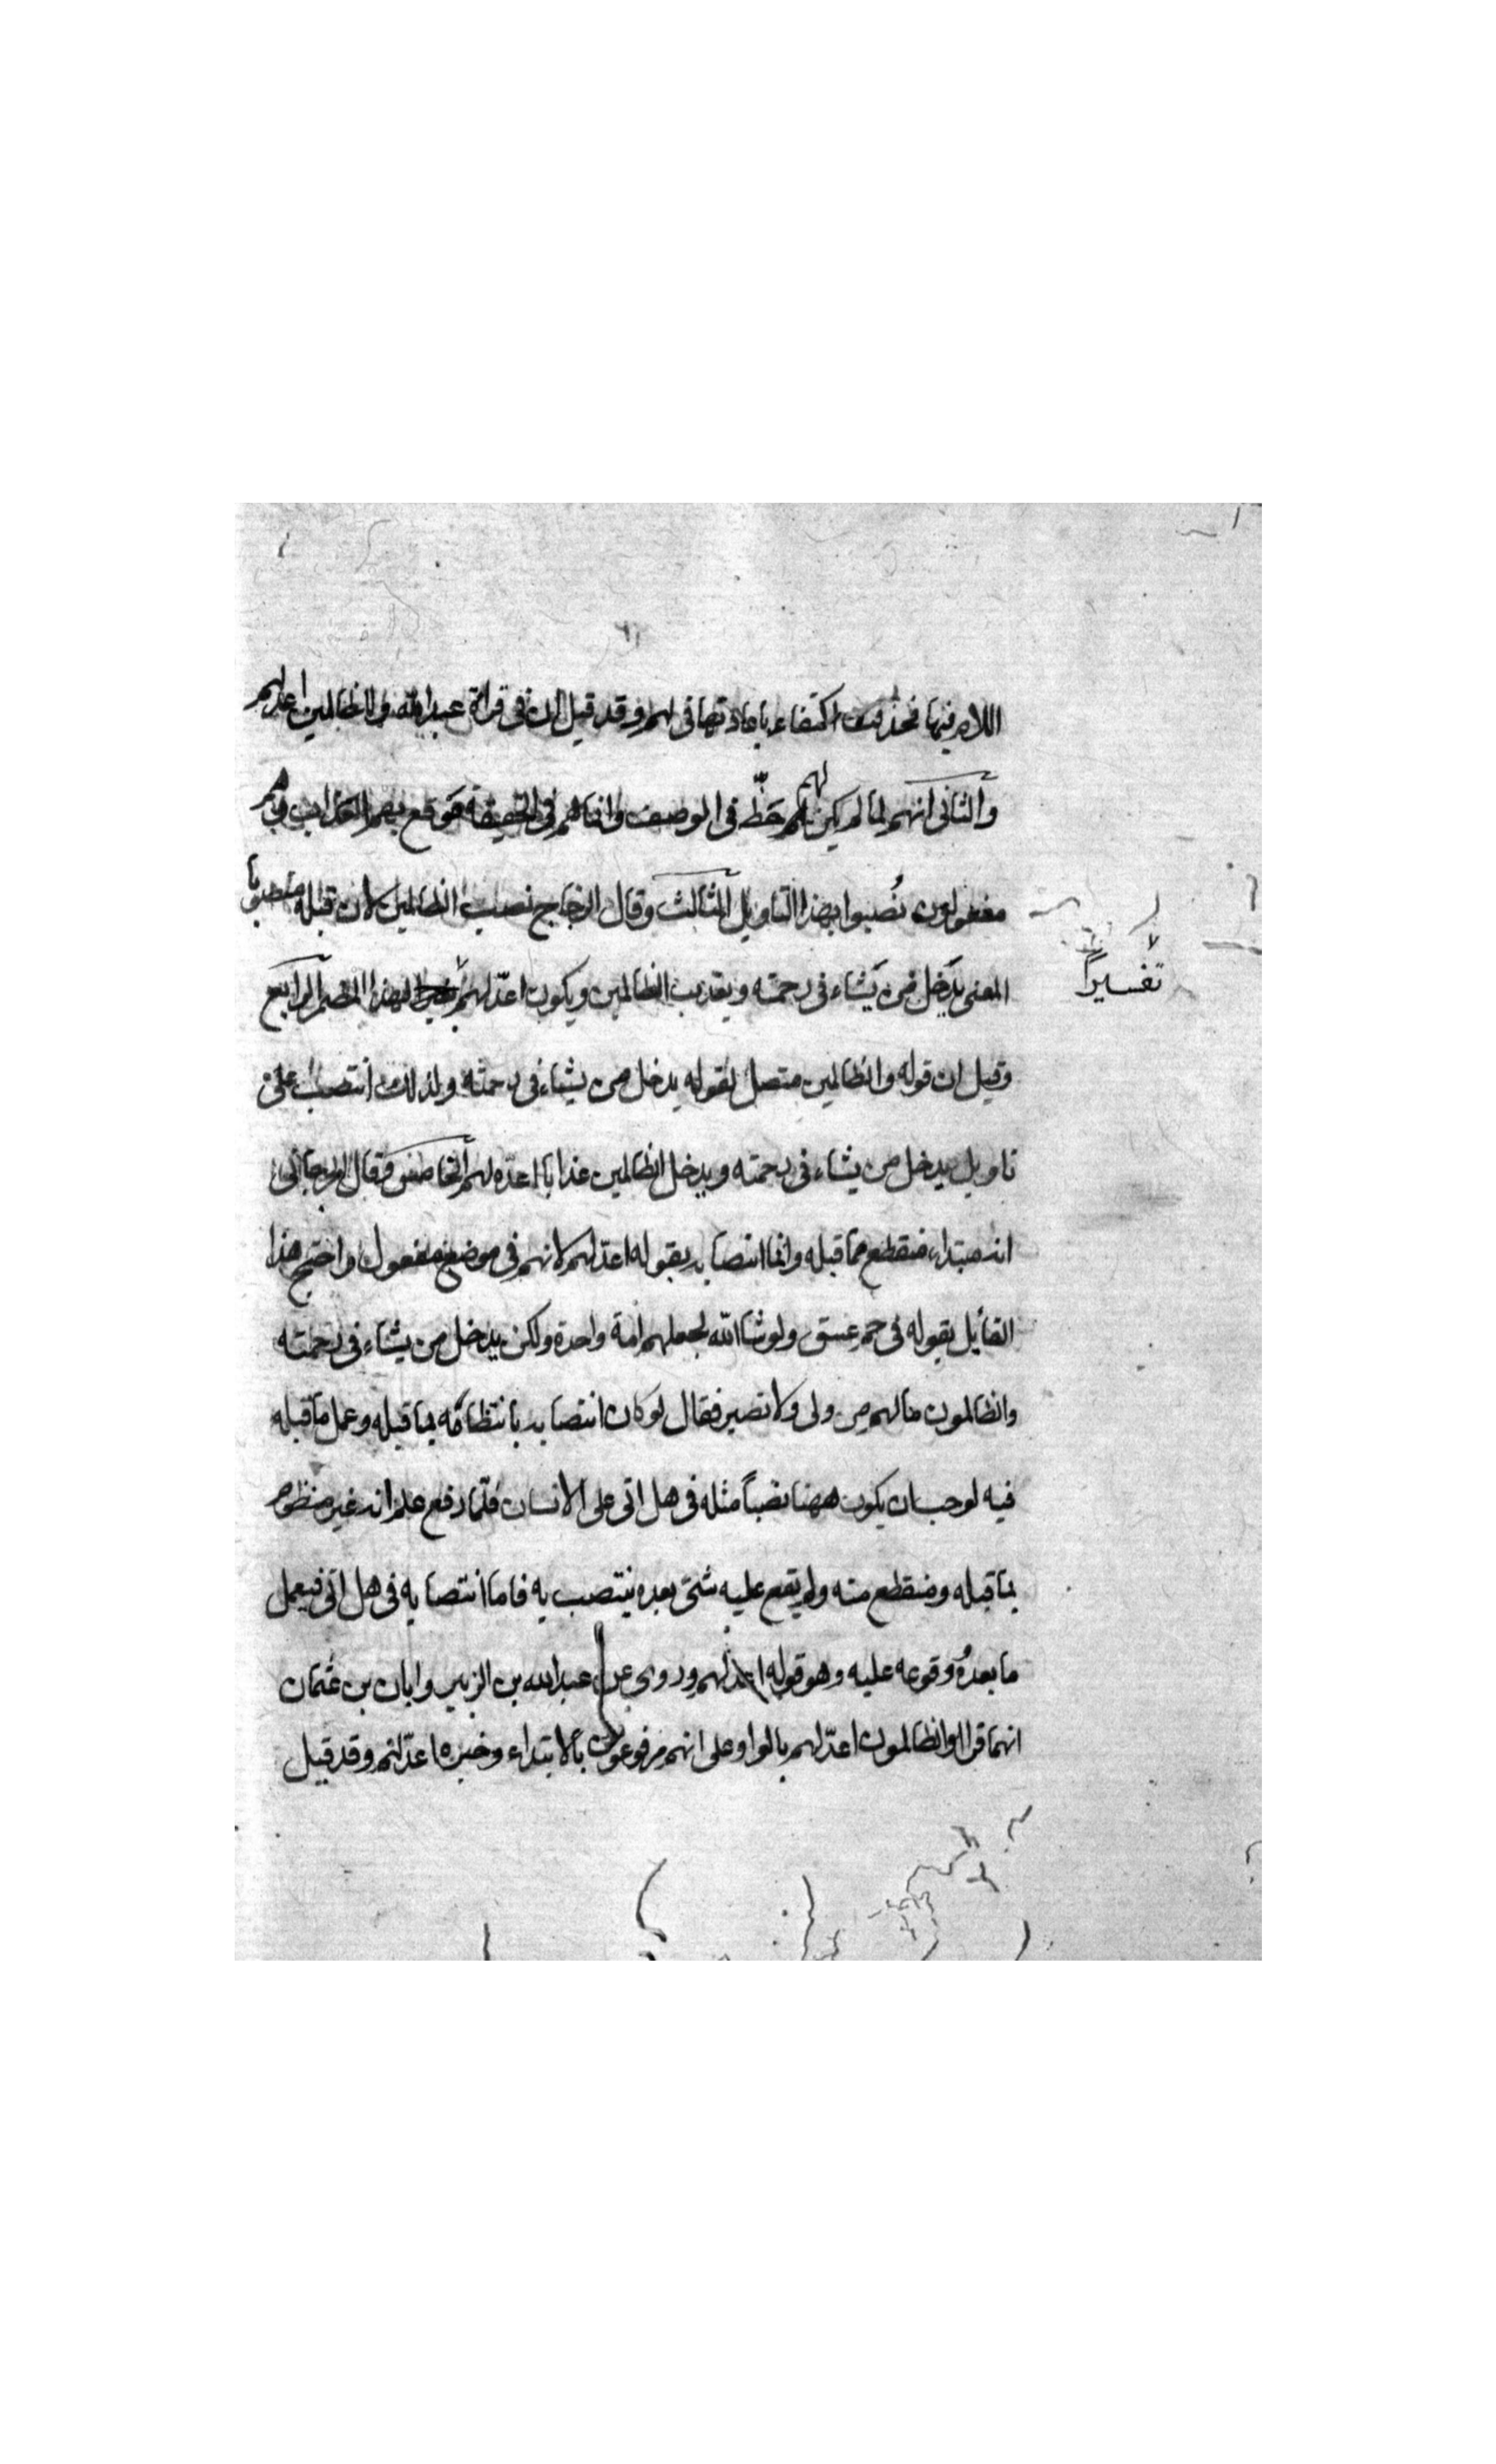 اللام فيها فحذفت اكتفاء باعادتها فى لهم وقد قيل ان فى قراة عبد الله وللظالمين اعد لهم
والثانى انهم لما لم يكن لهم حظ فى الوصف وانما هم فى الحقيقة موقع بهم العذاب فهم
مفعولون نُصبوا بهذا التاويل الثالث وقال الزجاج نصب الظالمين لان قبله منصوبا
المعنى يدخل من يشاء فى رحمته ويعذب الظالمين ويكون اعدّ لهم لهذا المضمر الرابع
تفسيراً
وقيل ان قوله والظالمين متصل بقوله يدخل من يشاء فى رحمته ولذلك انتصب على
تاويل يدخل من يشاء فى رحمته ويدخل الظالمين عذابا اعده لهم الخامس وقال الجرجانى
انه مبتداء منقطع مما قبله وانما انتصابه بقوله اعد لهم لانهم فى موضع مفعول واحتج هذا
القايل بقوله فى حم عسق ولو شا الله لجعلهم امة واحدة ولكن يدخل من يشاء فى رحمته
والظالمون ما لهم من ولى ولا نصير فقال لو كان انتصابه بانتظامه بما قبله وعمل ما قبله
فيه لوجب ان يكون ههنا نصباً مثله فى هل اتى على الانسان فلمّا رفع علم انه غير منظوم
بما قبله ومنقطع منه ولم يقع عليه شئ بعده ينتصب به فاما انتصابه فى هل اتى فيعمل
ما بعدهُ وقوعه عليه وهو قوله اعد لهم وروى عن عبد الله بن الزبير وابان بن عثمان
انهما قراا والظالمون اعدّ لهم بالواو على انهم مرفوعون بالابتداء وخبره اعدّ لهم وقد قيل